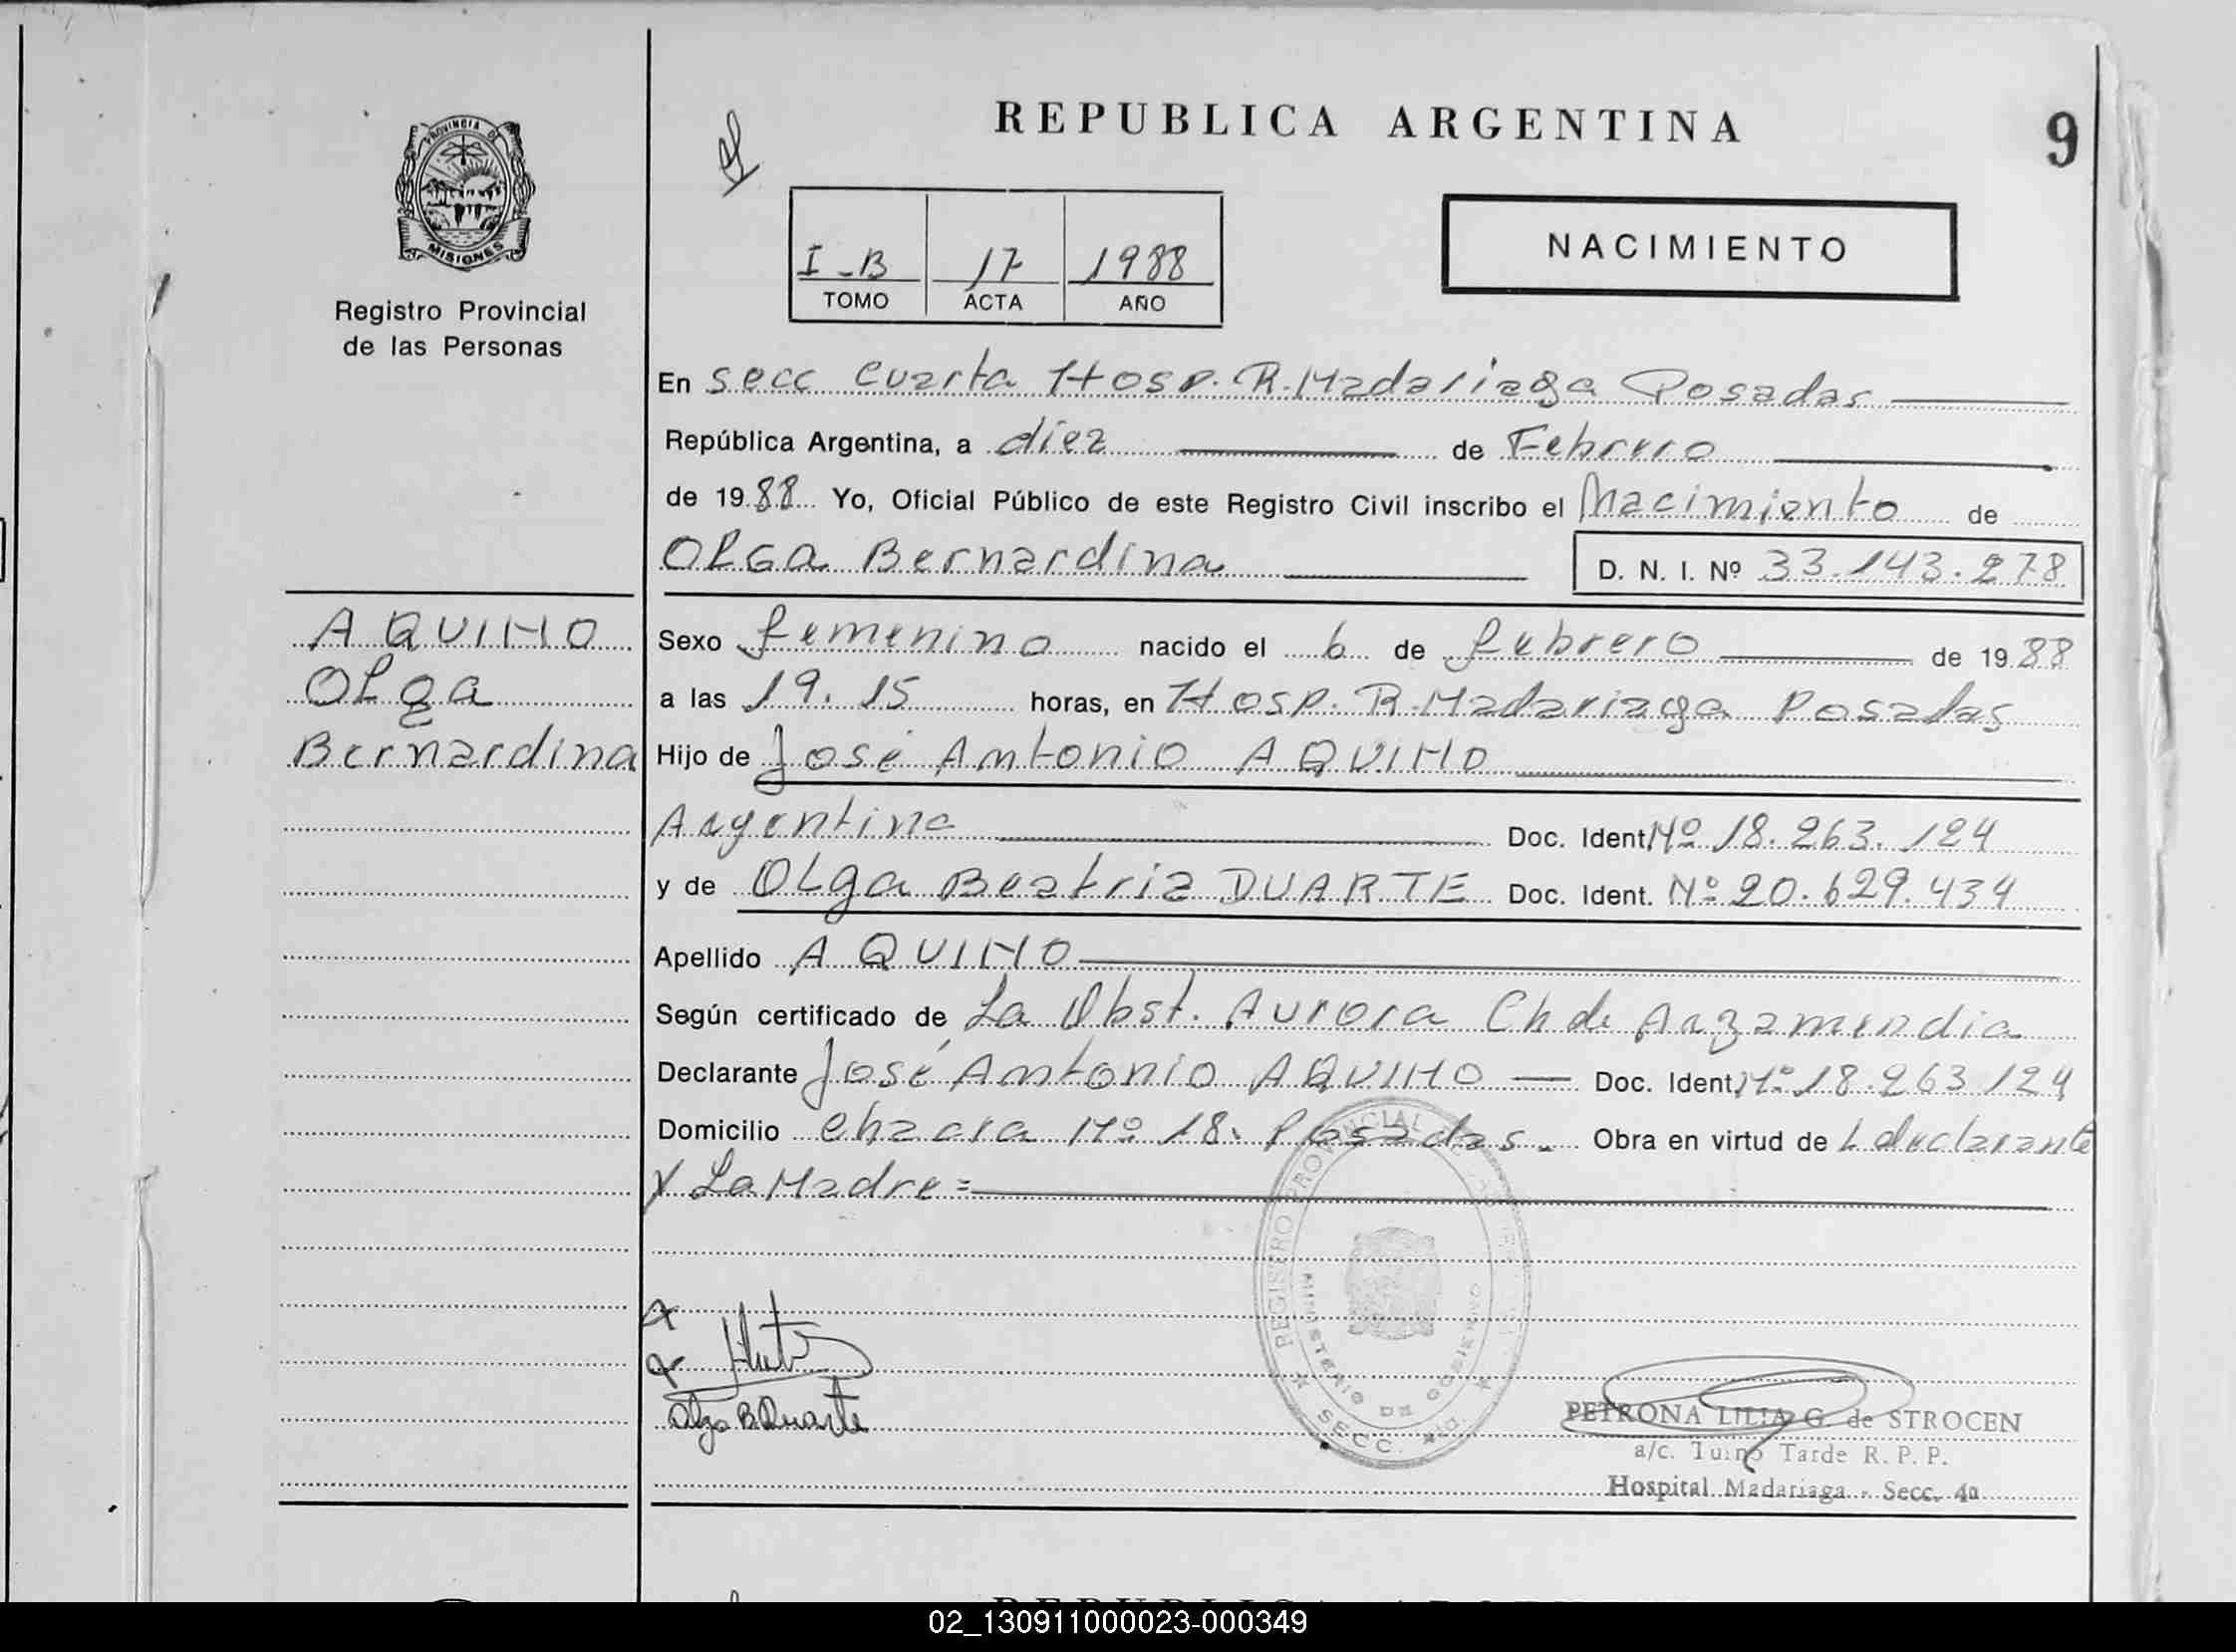 REPUBLICA ARGENTINA
9
PROVINCIA DE
MISIONES
Registro Provincial
de las Personas
I-B 17 1988
TOMO ACTA AÑO
NACIMIENTO
En secc cuarta Hosp. R. Madariaga Posadas
República Argentina, a diez de Febrero
de 1988 Yo, Oficial Público de este Registro Civil inscribo el Nacimiento de
OLGA Bernardina D. N. I. Nº 33.143.278
AQUINO
Olga
Bernardina
Sexo femenino nacido el 6 de febrero de 1988
a las 19.15 horas, en Hosp. R. Madariaga Posadas
Hijo de José Antonio AQUINO
Argentina Doc. Ident Nº 18.263.124
y de Olga Beatriz DUARTE Doc. Ident. Nº 20.629.434
Apellido AQUINO
Según certificado de La Obst. Aurora Ch de Arzamendia
Declarante José Antonio AQUINO — Doc. Ident. Nº 18.263.124
Domicilio chacra Nº 18. Posadas. Obra en virtud de L declarante
y La Madre=
REGISTRO PROVINCIAL
MINISTERIO DE GOBIERNO
SECC. 4ta.
Olga B. Duarte
PETRONA LILIA G. de STROCEN
a/c. Turno Tarde R. P. P.
Hospital Madariaga - Secc. 4a
02_130911000023-000349